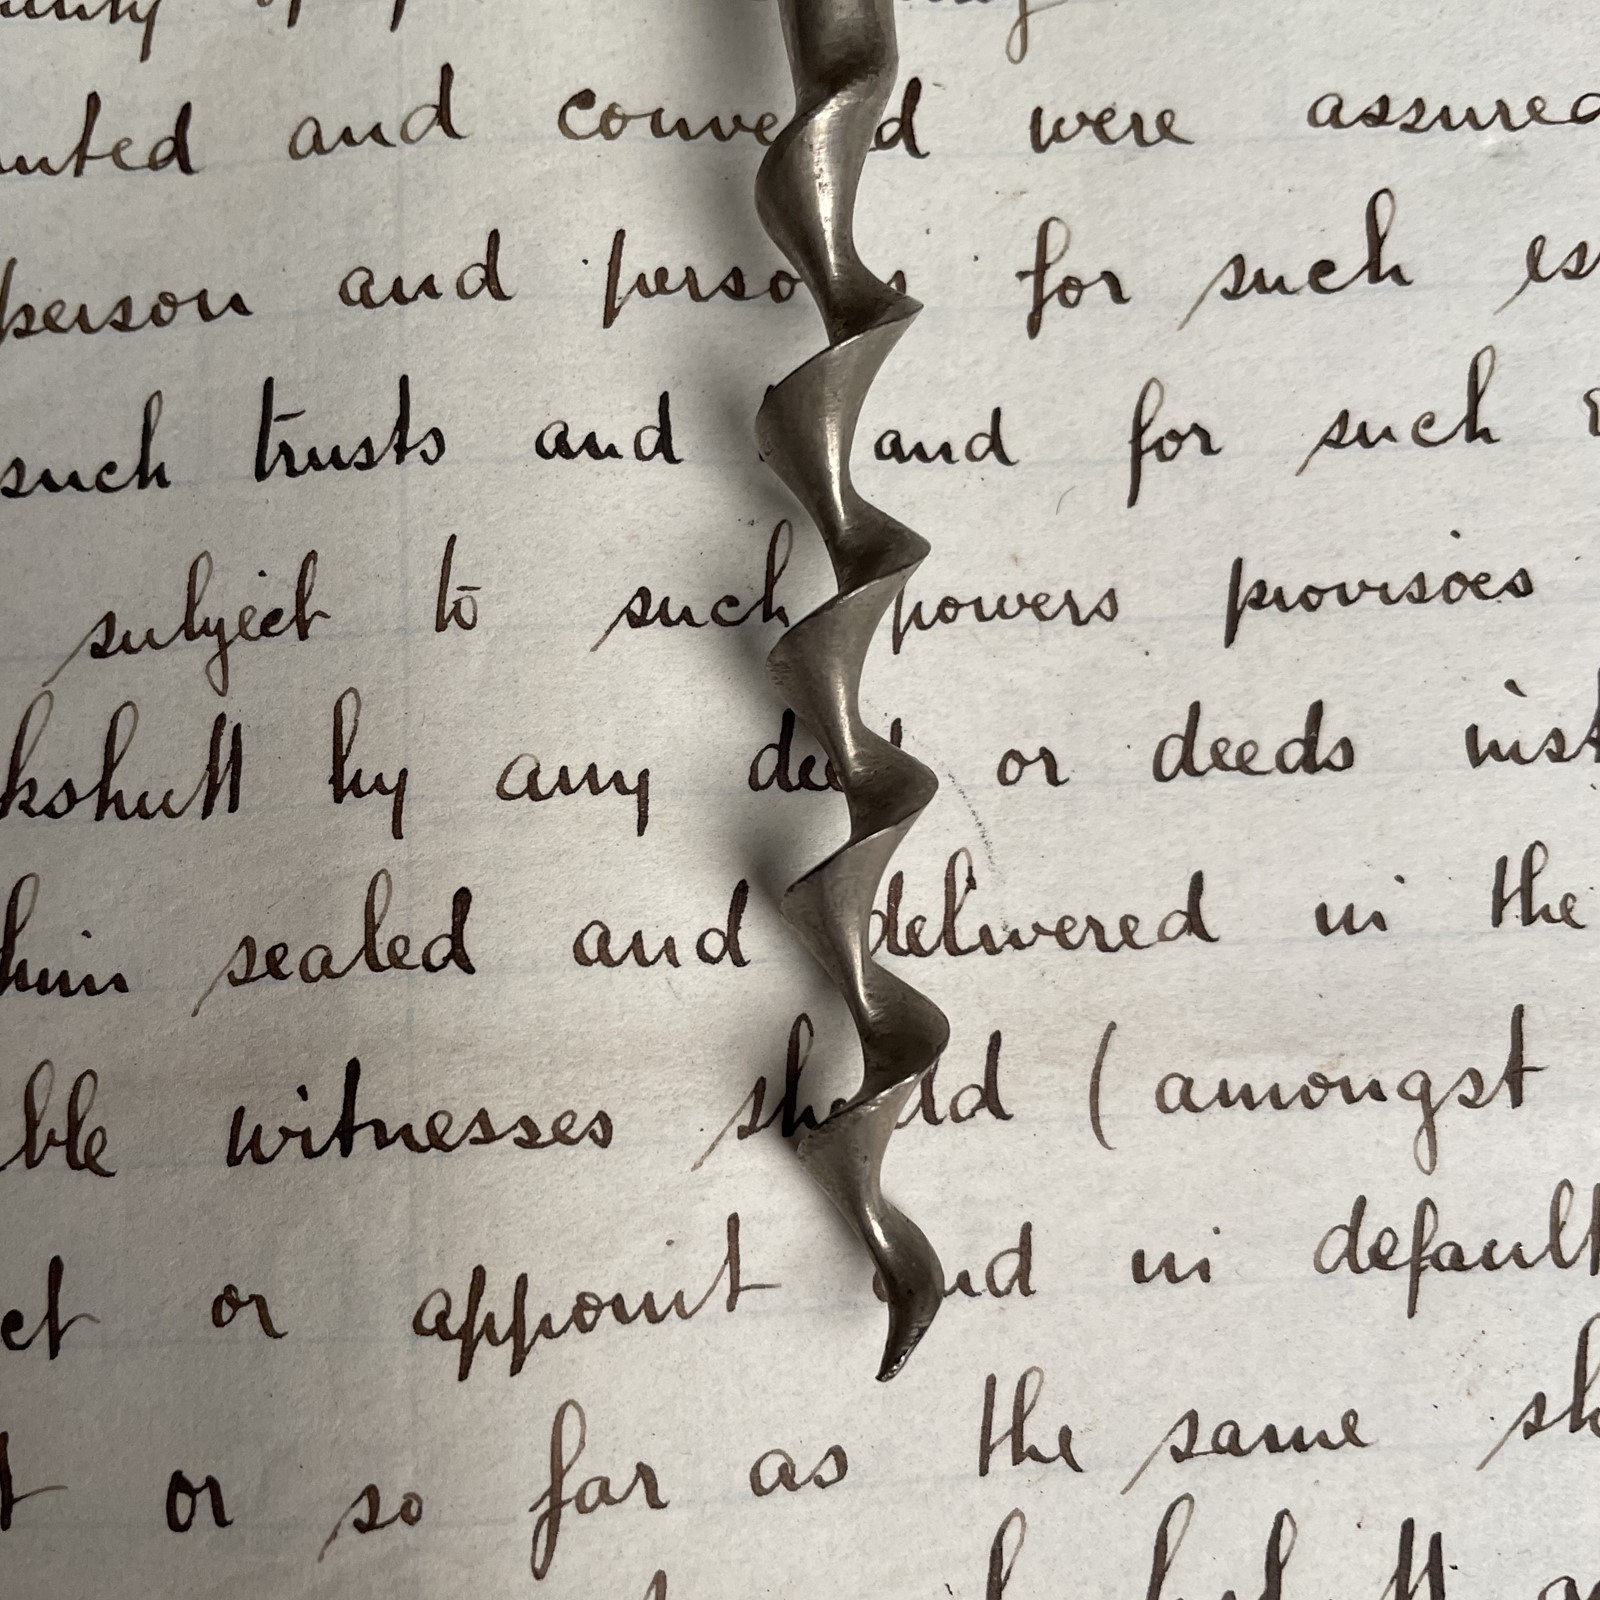 and conveyed were assured
person and persons for such
such trusts and and for such
subject to such powers provisoes
by any deed or deeds
him sealed and delivered in the
witnesses should (amongst
or appoint and in default
or so far as the same